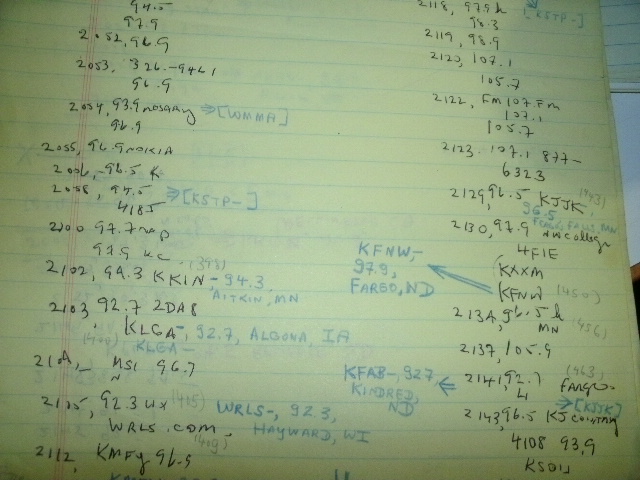 94.5
97.9
2052, 96.9
2053, 326-9461
96.9
2054, 93.9 ROSARY ⇒ [WMMA]
96.9
2055, 96.9 NOKIA
2056, 96.5 K
2058, 94.5 ⇒ [KSTP-]
4185
2100 97.7
97.9 KC (398)
2102, 94.3 KKIN - 94.3,
AITKIN, MN
2103 92.7 2DA8
KLGA-, 92.7, ALGONA, IA
(400) KLGA-
MSL 96.7
N
2105, 92.3 WX (405) WRLS-, 92.3,
WRLS.COM, HAYWARD, WI
(409)
2112, KMFY 96.9
2118, 97.9 K
98.3 [KSTP-]
2119, 98.9
2120, 107.1
105.7
2122, FM 107.FM
107.1
105.7
2123. 107.1 877-
6323
2129, 96.5 KJJK, (443)
96.5,
FERGUS FALLS, MN
2130, 97.9 NW College
4F1E
KXXM
KFNW (450)
KFNW,-
97.9,
FARGO, ND
2134, 96.5 K
MN (456)
2137, 105.9
2141 92.7 Fargo (463)
KFAB-, 92.7,
KINDRED,
ND
[KJJK]
2143, 96.5 KJ Country
4108 93.9